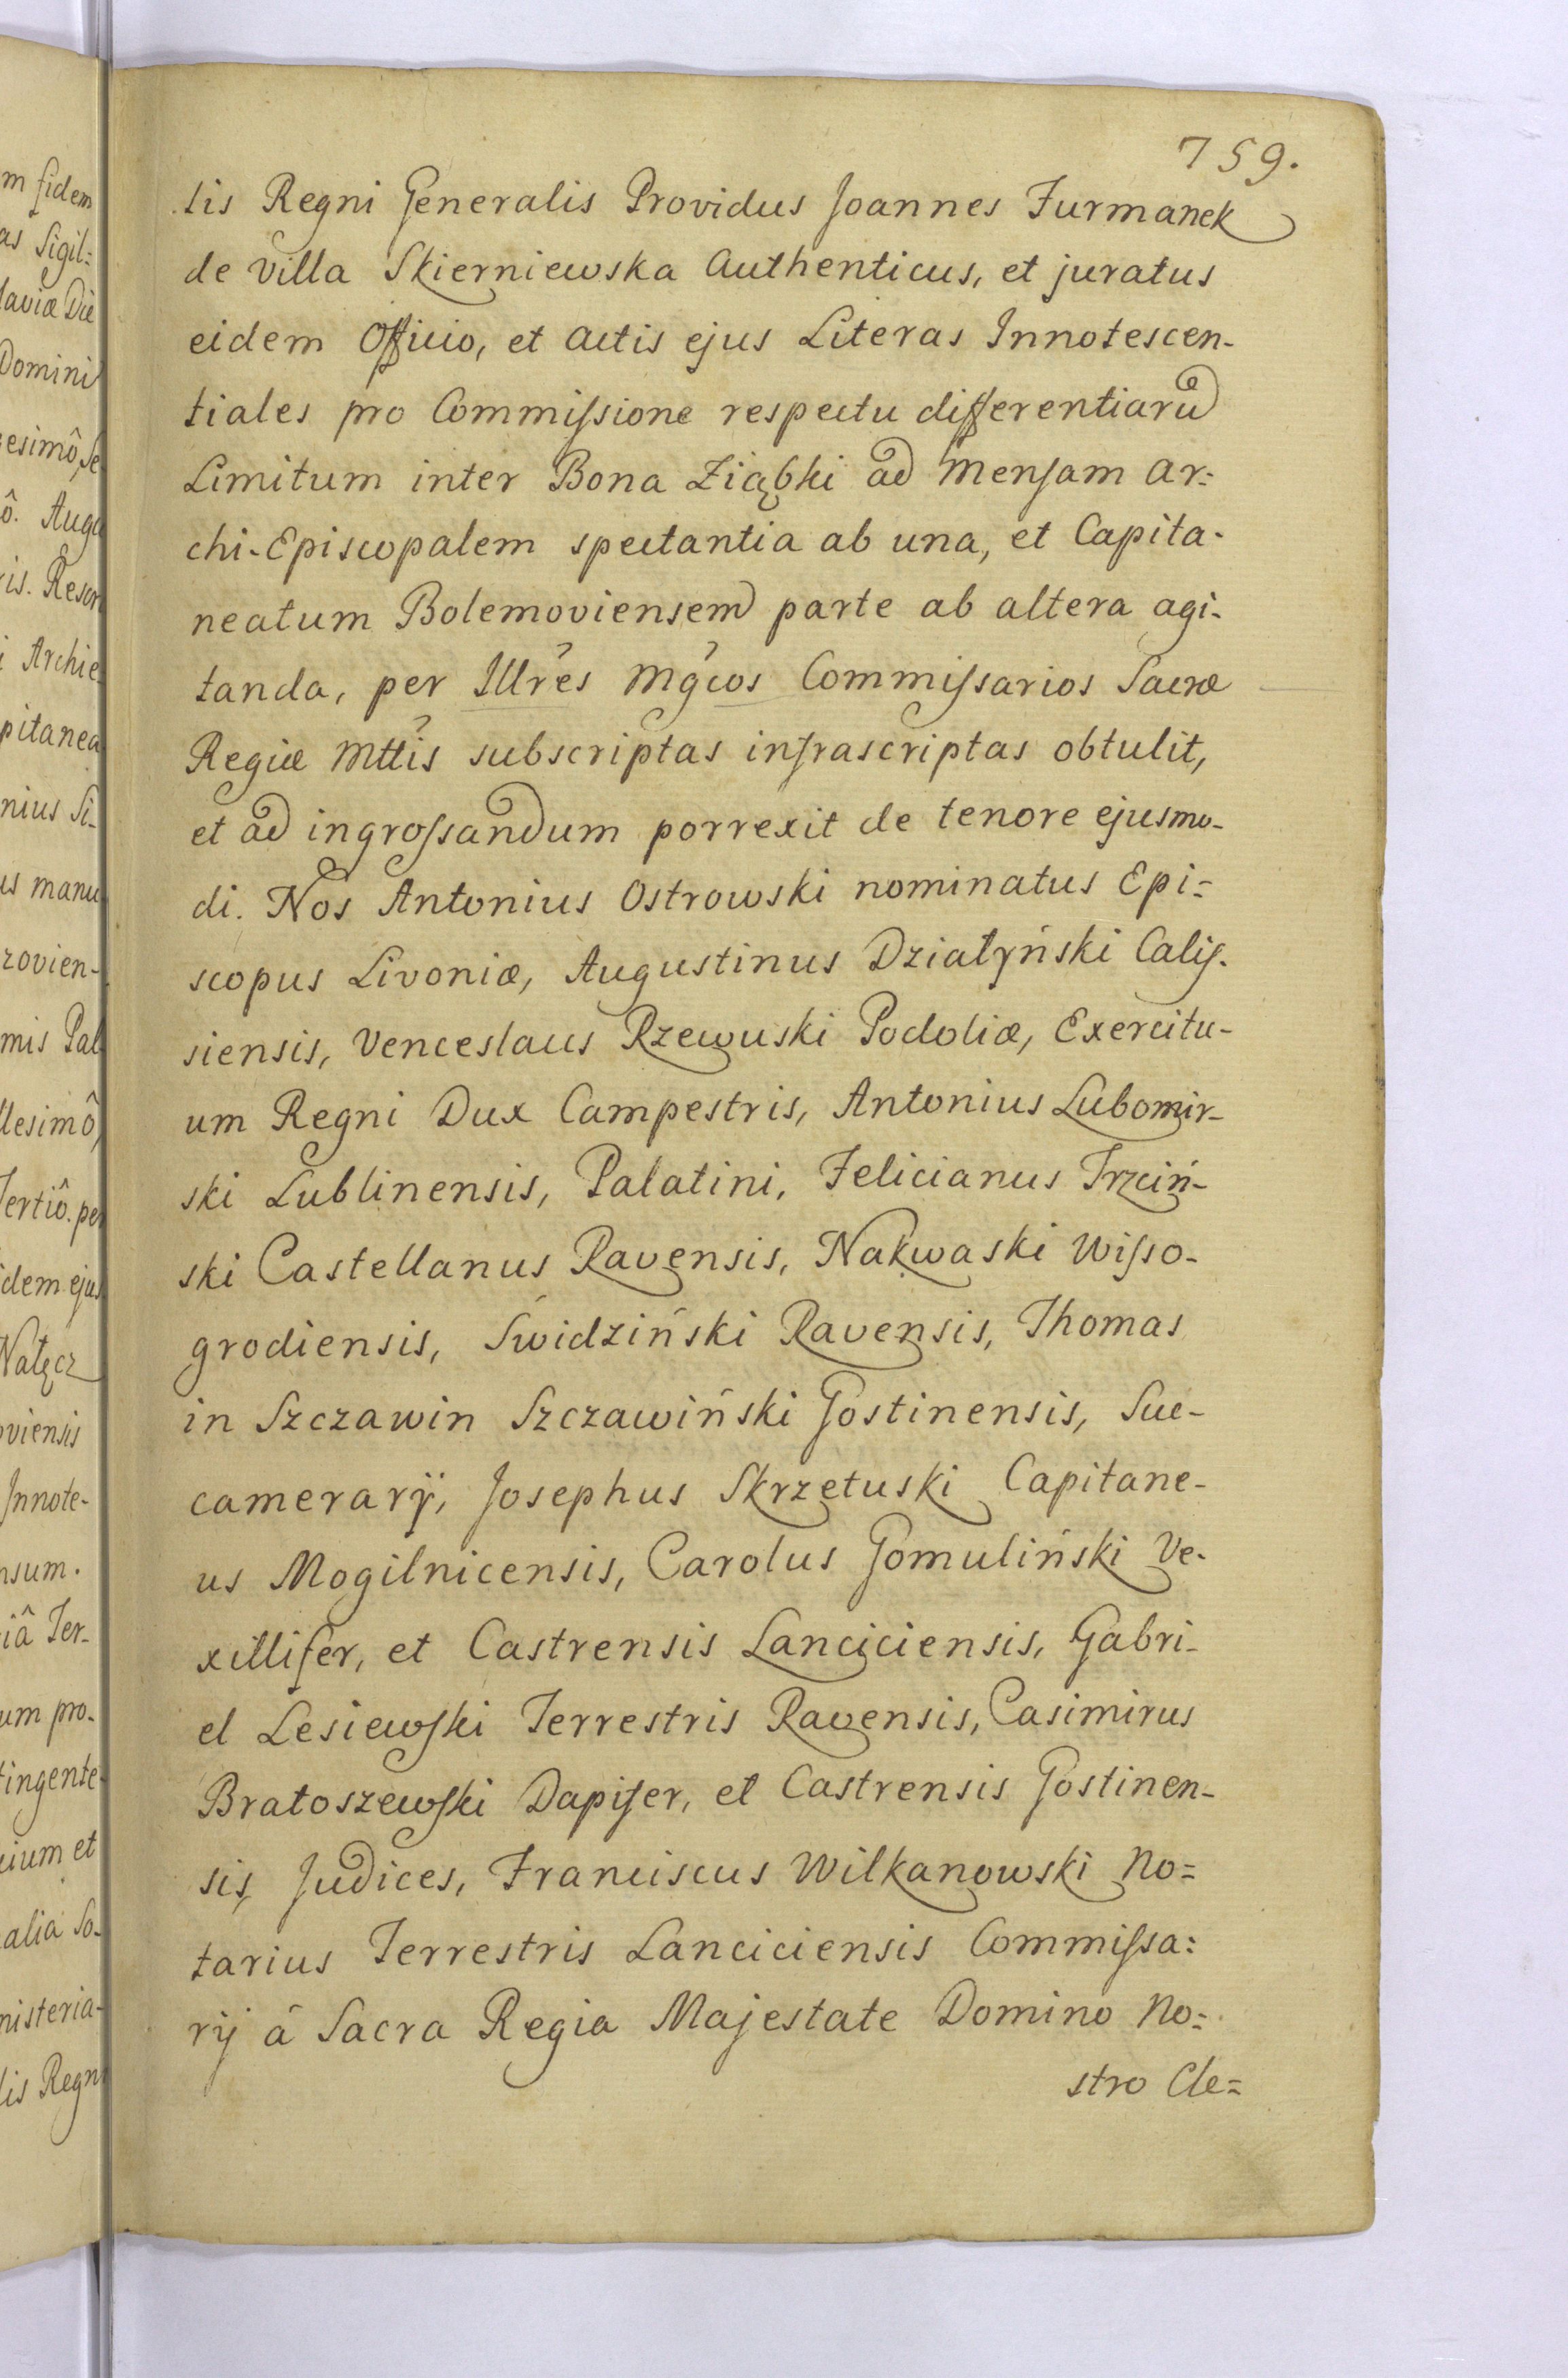 759.
tis Regni Generalis Providus Joannes Furmanek
de villa Skierniewska Authenticus, et juratus
eidem Officio, et Actis ejus Literas Innotescen-
tiales pro Commissione respectu differentiarū
Limitum inter Bona Ziąbki ad Mensam Ar=
chi-Episcopalem spectantia ab una, et Capita-
neatum Bolemoviensem parte ab altera agi-
tanda, per Illres Mgcos Commissarios Sacræ
Regiæ Mttis subscriptas infrascriptas obtulit,
et ad ingrossandum porrexit de tenore ejusmo-
di. Nos Antonius Ostrowski nominatus Epi=
scopus Livoniæ, Augustinus Działyński Calis-
siensis, Venceslaus Rzewuski Podoliæ, Exercitu-
um Regni Dux Campestris, Antonius Lubomir-
ski Lublinensis, Palatini, Felicianus Trzciń-
ski Castellanus Ravensis, Nakwaski Wisso-
grodiensis, Swidziński Ravensis, Thomas
in Szczawin Szczawiński Gostinensis, Suc-
camerarij, Josephus Skrzetuski Capitane-
us Mogilnicensis, Carolus Gomuliński Ve-
xillifer, et Castrensis Lanciciensis, Gabri-
el Lesiewski Terrestris Ravensis, Casimirus
Bratoszewski Dapifer, et Castrensis Gostinen-
sis, Judices, Franciscus Wilkanowski No=
tarius Terrestris Lanciciensis Commissa=
rij â Sacra Regia Majestate Domino No=
stro Cle=
m fidem
as Sigil=
laviæ Die
Domini
esimô, Se
ô. Augu
is. Resor
i Archie
pitanea
nius Si-
us manu
zovien-
mis Pal
llesimô,
Tertiô. per
idem ejus
Nałęcz
oviensis
Innote-
nsum.
iâ Ter-
um pro-
tingente
cium et
alia So-
nisteria-
lis Regni